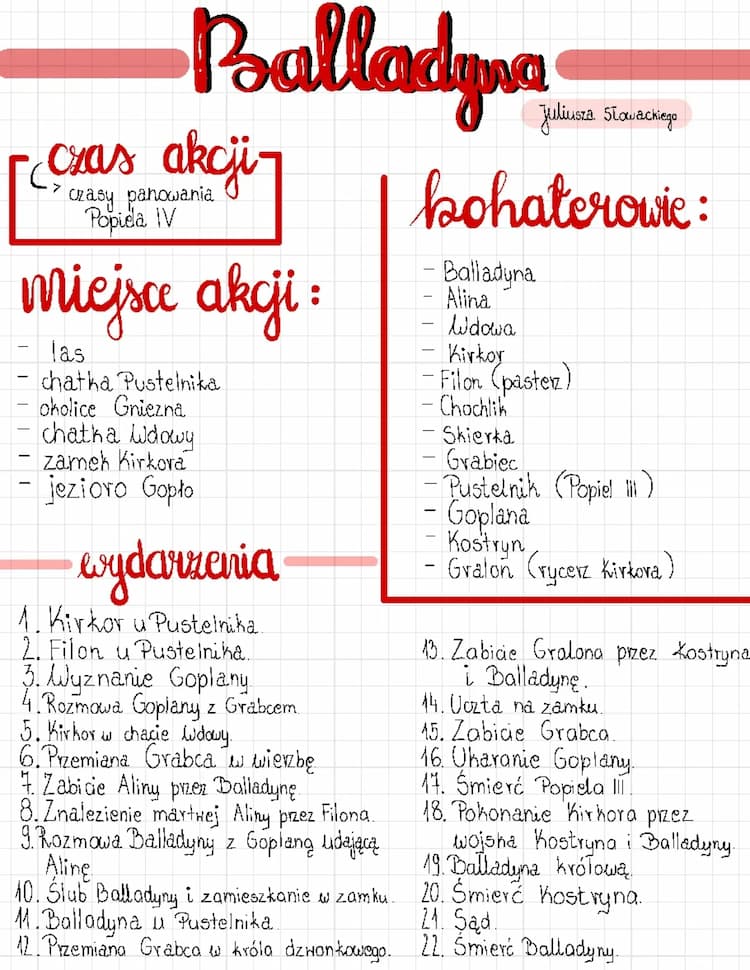 Balladyna
Juliusza Słowackiego
czas akcji
czasy panowania
Popiela IV
miejsce akcji:
- las
- chatka Pustelnika
- okolice Gniezna
- chatka Wdowy
- zamek Kirkora
- jezioro Gopło
bohaterowie:
- Balladyna
- Alina
- Wdowa
- Kirkor
- Filon (pasterz)
- Chochlik
- Skierka
- Grabiec
- Pustelnik (Popiel III)
- Goplana
- Kostryn
- Gralon (rycerz Kirkora)
wydarzenia
1. Kirkor u Pustelnika.
2. Filon u Pustelnika.
3. Wyznanie Goplany
4. Rozmowa Goplany z Grabcem.
5. Kirkor w chacie Wdowy.
6. Przemiana Grabca w wierzbę
7. Zabicie Aliny przez Balladynę.
8. Znalezienie martwej Aliny przez Filona.
9. Rozmowa Balladyny z Goplaną udającą
Alinę
10. Ślub Balladyny i zamieszkanie w zamku.
11. Balladyna u Pustelnika.
12. Przemiana Grabca w króla dzwonkowego.
13. Zabicie Gralona przez Kostryna
i Balladynę.
14. Uczta na zamku.
15. Zabicie Grabca.
16. Ukaranie Goplany.
17. Śmierć Popiela III.
18. Pokonanie Kirkora przez
wojska Kostryna i Balladyny.
19. Balladyna królową.
20. Śmierć Kostryna.
21. Sąd.
22. Śmierć Balladyny.